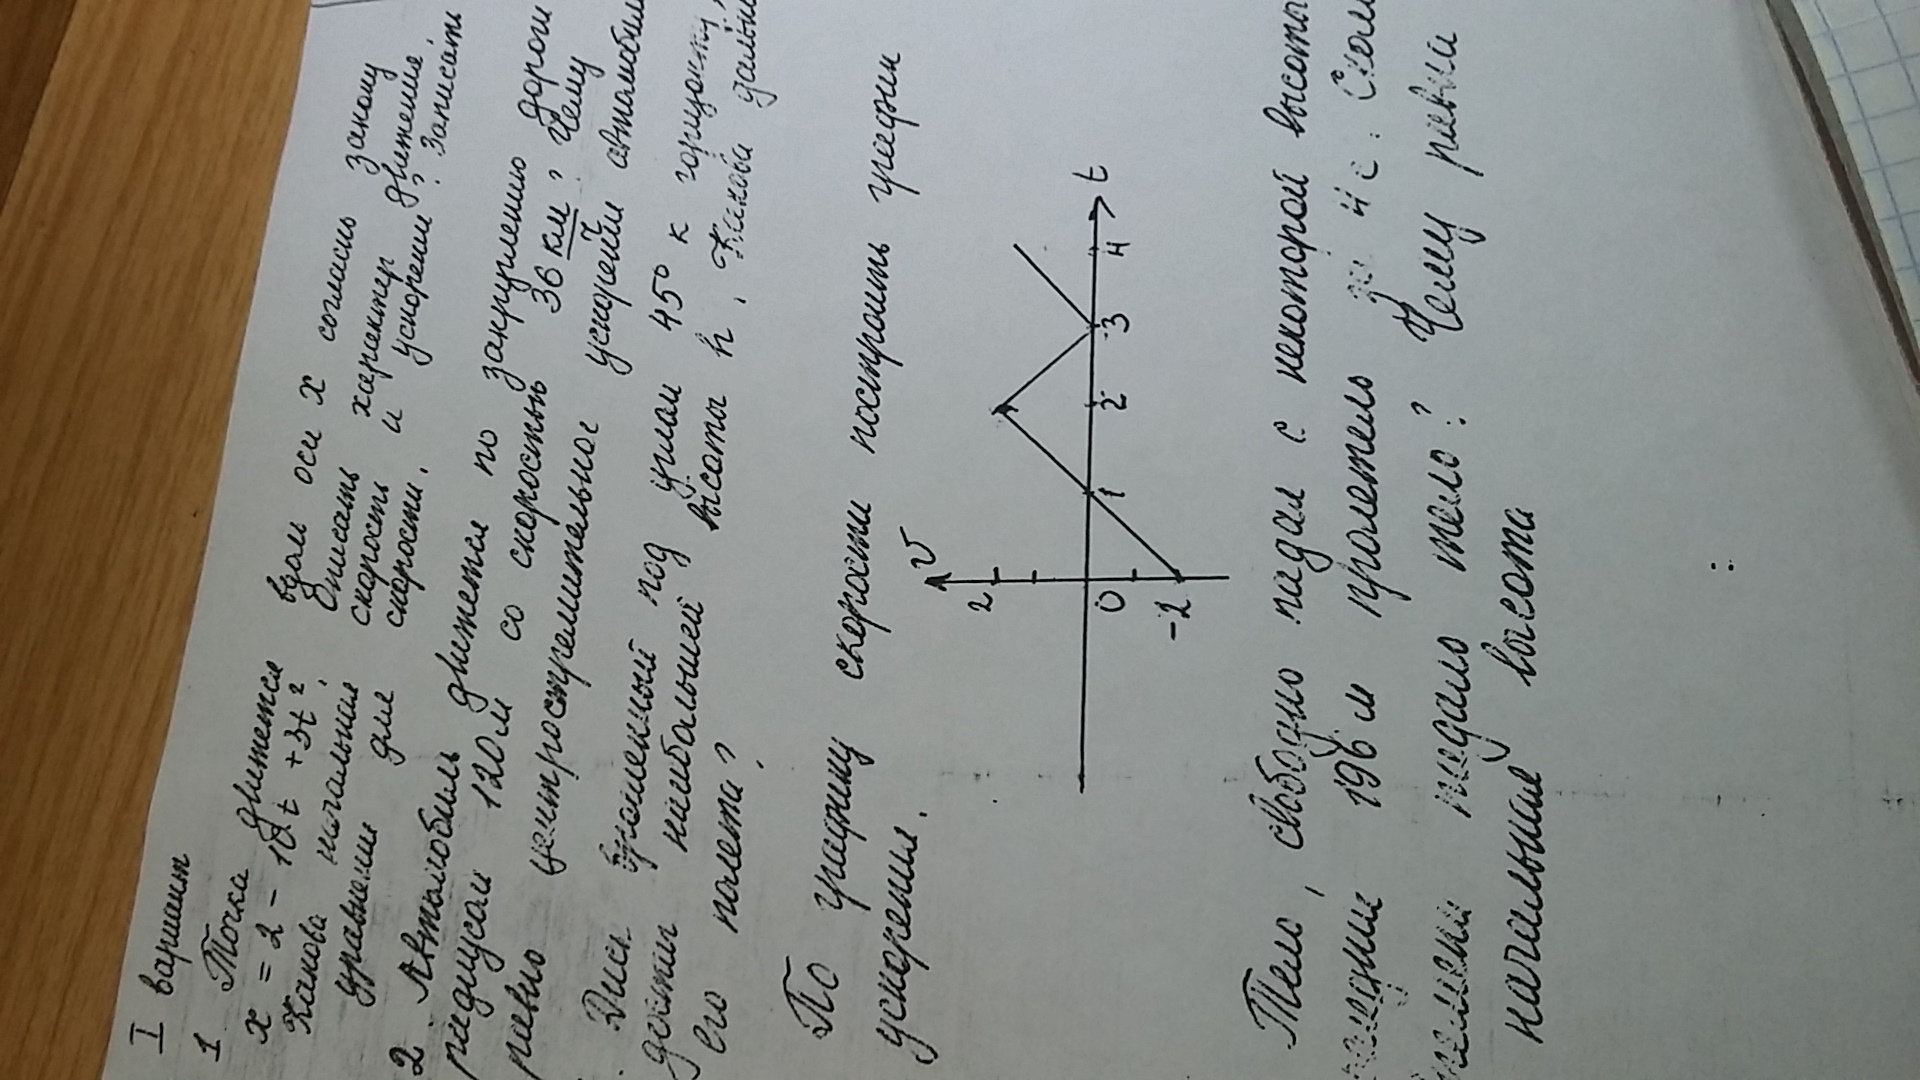 I вариант
1 Точка движется вдоль оси x согласно закону
x = 2 - 10t + 3t² Описать характер движения.
Какова начальная скорость и ускорение? Записать
уравнение для скорости.
2. Автомобиль движется по закруглению дороги
радиусом 120 м со скоростью 36 км/ч? Чему
равно центростремительное ускорение автомобиля
Диск брошенный под углом 45° к горизонту,
достиг наибольшей высоты h. Какова дальность
его полета?
По графику скорости построить график
ускорения.
v
2
0
-2
1
2
3
4
t
Тело, свободно падая с некоторой высоты
последние 196 м пролетело за 4 с. Сколько
времени падало тело? Чему равна
начальная высота